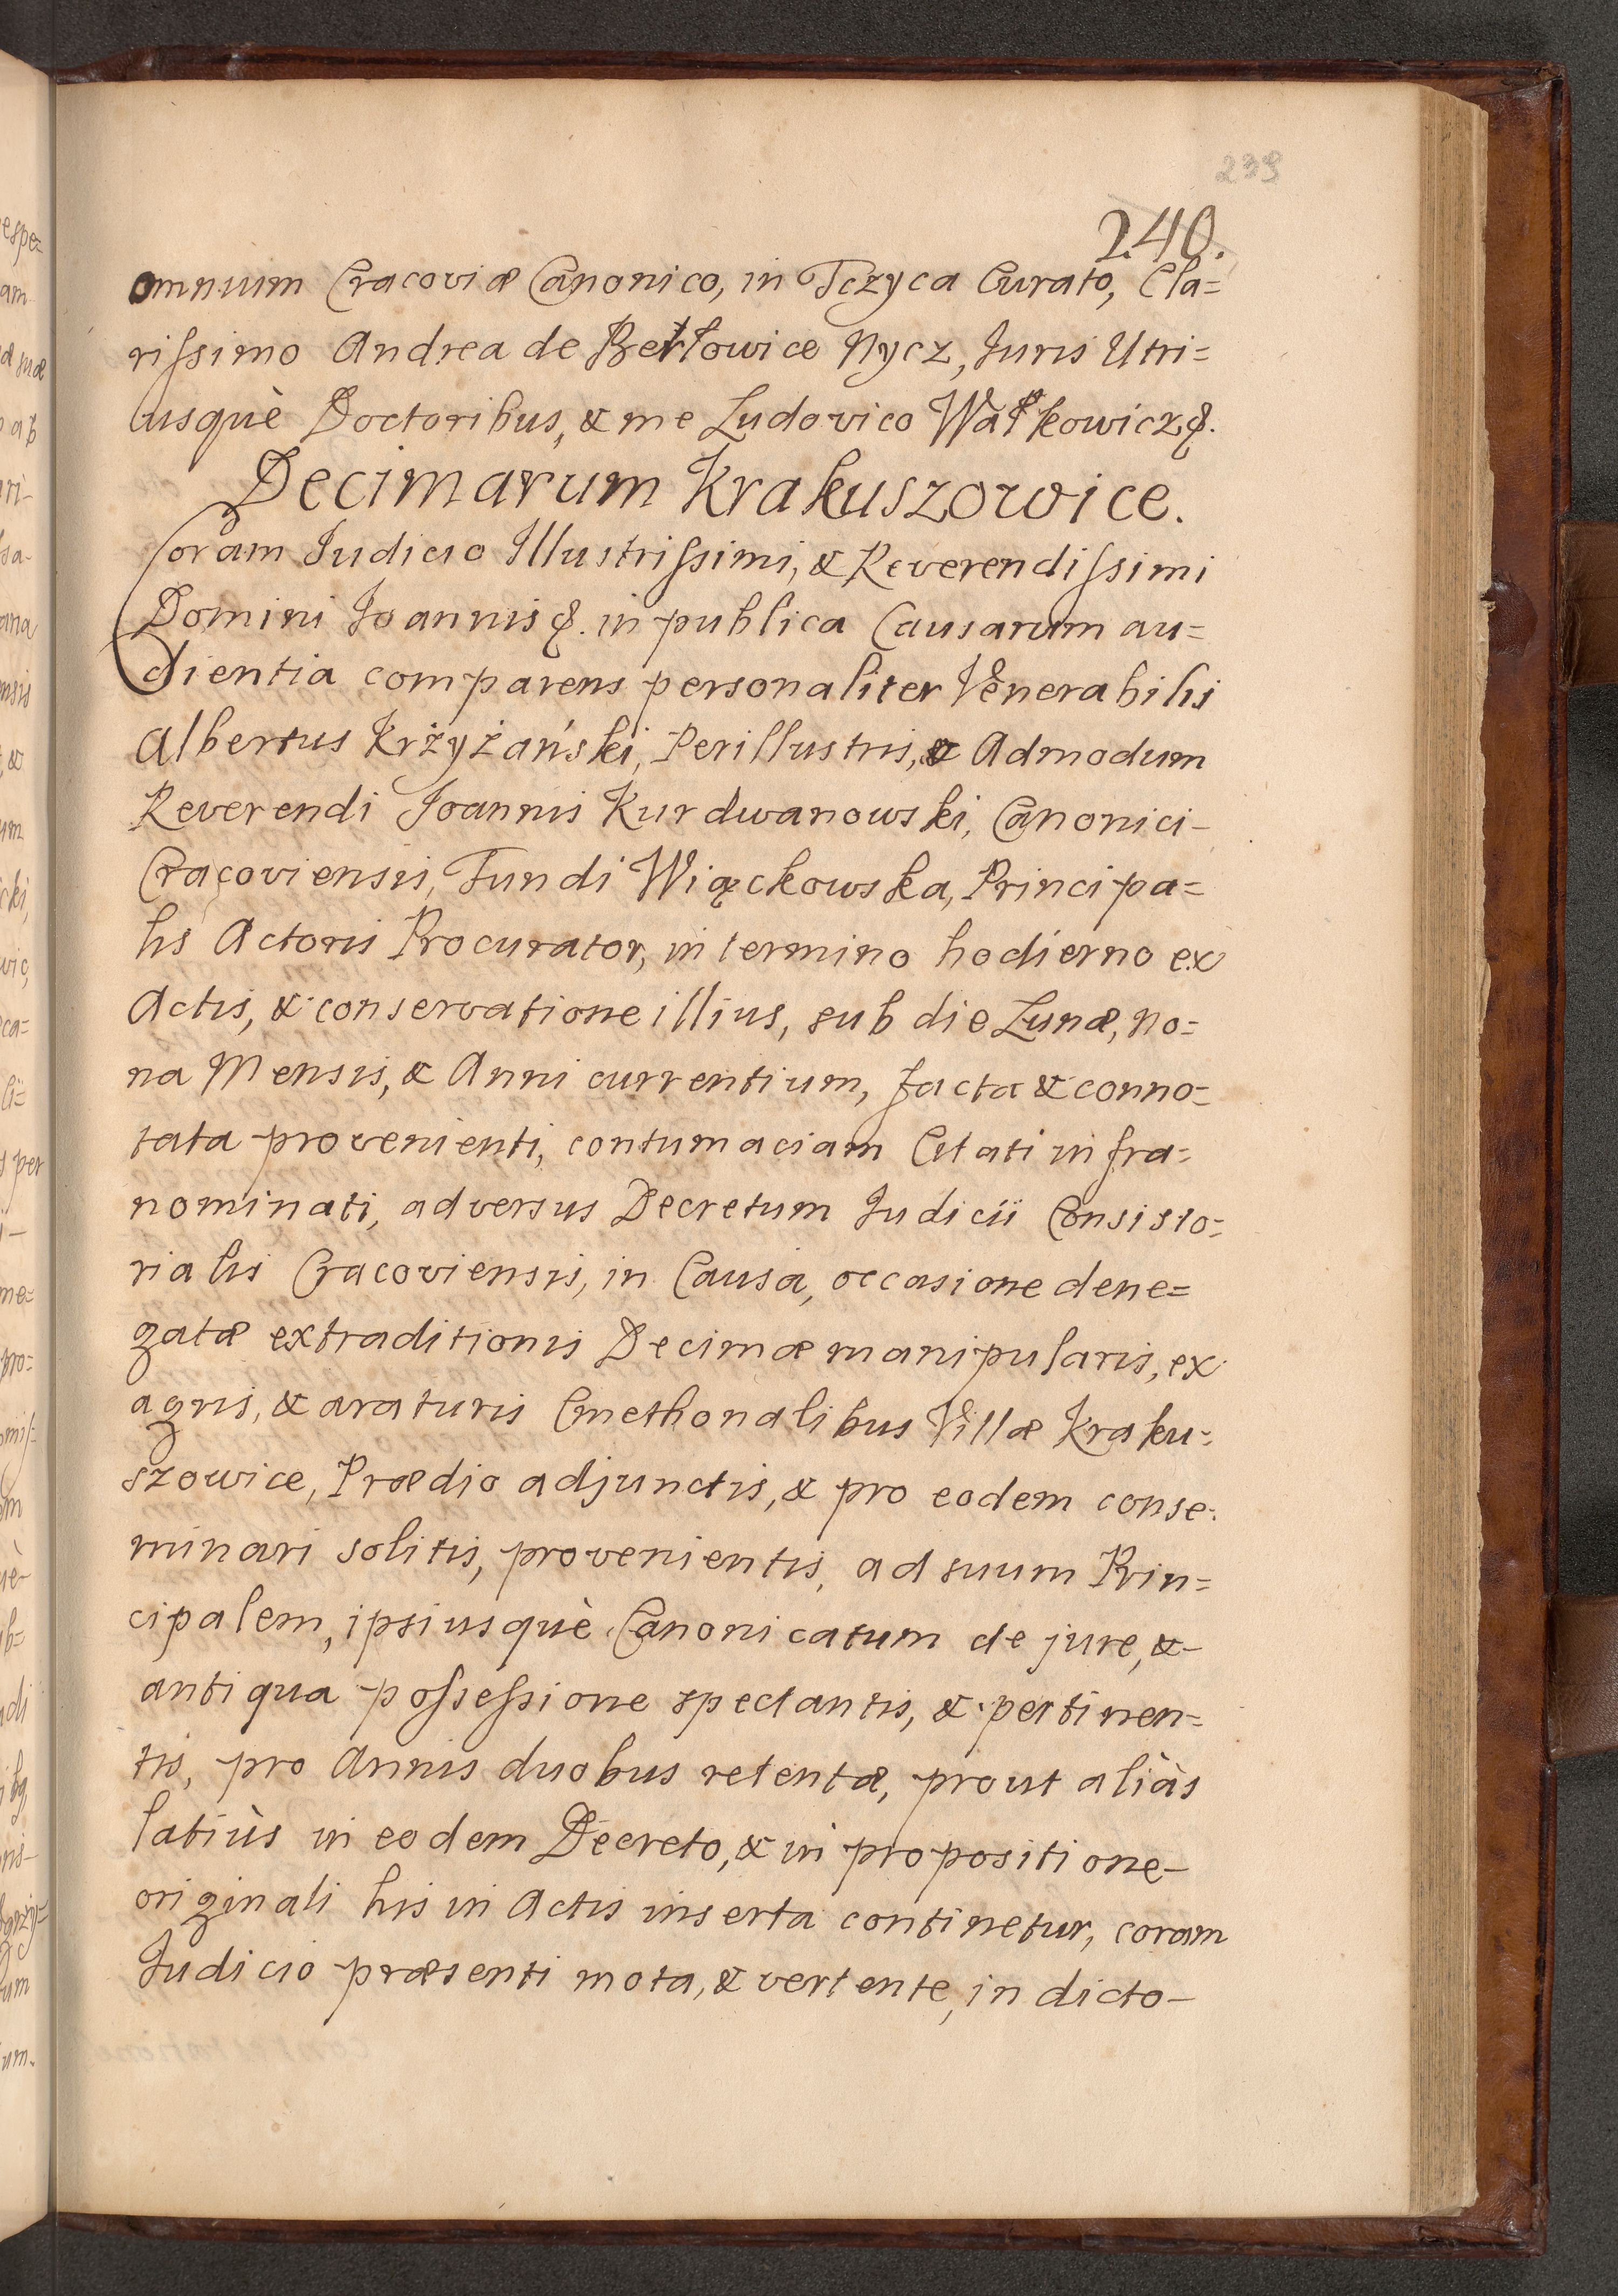 239
240.
omnium Cracoviæ Canonico, in Tczyca Curato, Cla=
riſsimo Andrea de Bertowice Nycz, Juris Utri=
usquè Doctoribus, & me Ludovico Wałkowicz &.
Decimarum Krakuszowice.
Coram Iudicio Illustriſsimi, & Reverendiſsimi
Domini Ioannis &. in publica Causarum au=
dientia comparens personaliter Venerabilis
Albertus Krżyżański, Perillustris, & Admodum
Reverendi Ioannis Kurdwanowski, Canonici-
Cracoviensis, Fundi Wiąckowska, Principa=
lis Actoris Procurator, in termino hodierno ex
Actis, & conservatione illius, sub die Lunæ, no=
na Mensis, & Anni currentium, facta & conno=
tata provenienti, contumaciam Citati infra=
nominati, adversus Decretum Iudicii Consisto=
rialis Cracoviensis, in Causa, occasione dene=
gatæ extraditionis Decimæ manipularis, ex
agris, & araturis Cmethonalibus Villæ Kraku=
szowice, Prædio adjunctis, & pro eodem conse=
minari solitis, provenientis, ad suum Prin=
cipalem, ipsiusquè Canonicatum de jure, &-
antiqua poſseſsione spectantis, & pertinen=
tis, pro Annis duobus retentæ, prout aliàs
latiùs in eodem Decreto, & in propositione-
originali his in Actis inserta continetur, coram
Iudicio præsenti mota, & vertente, in dicto-